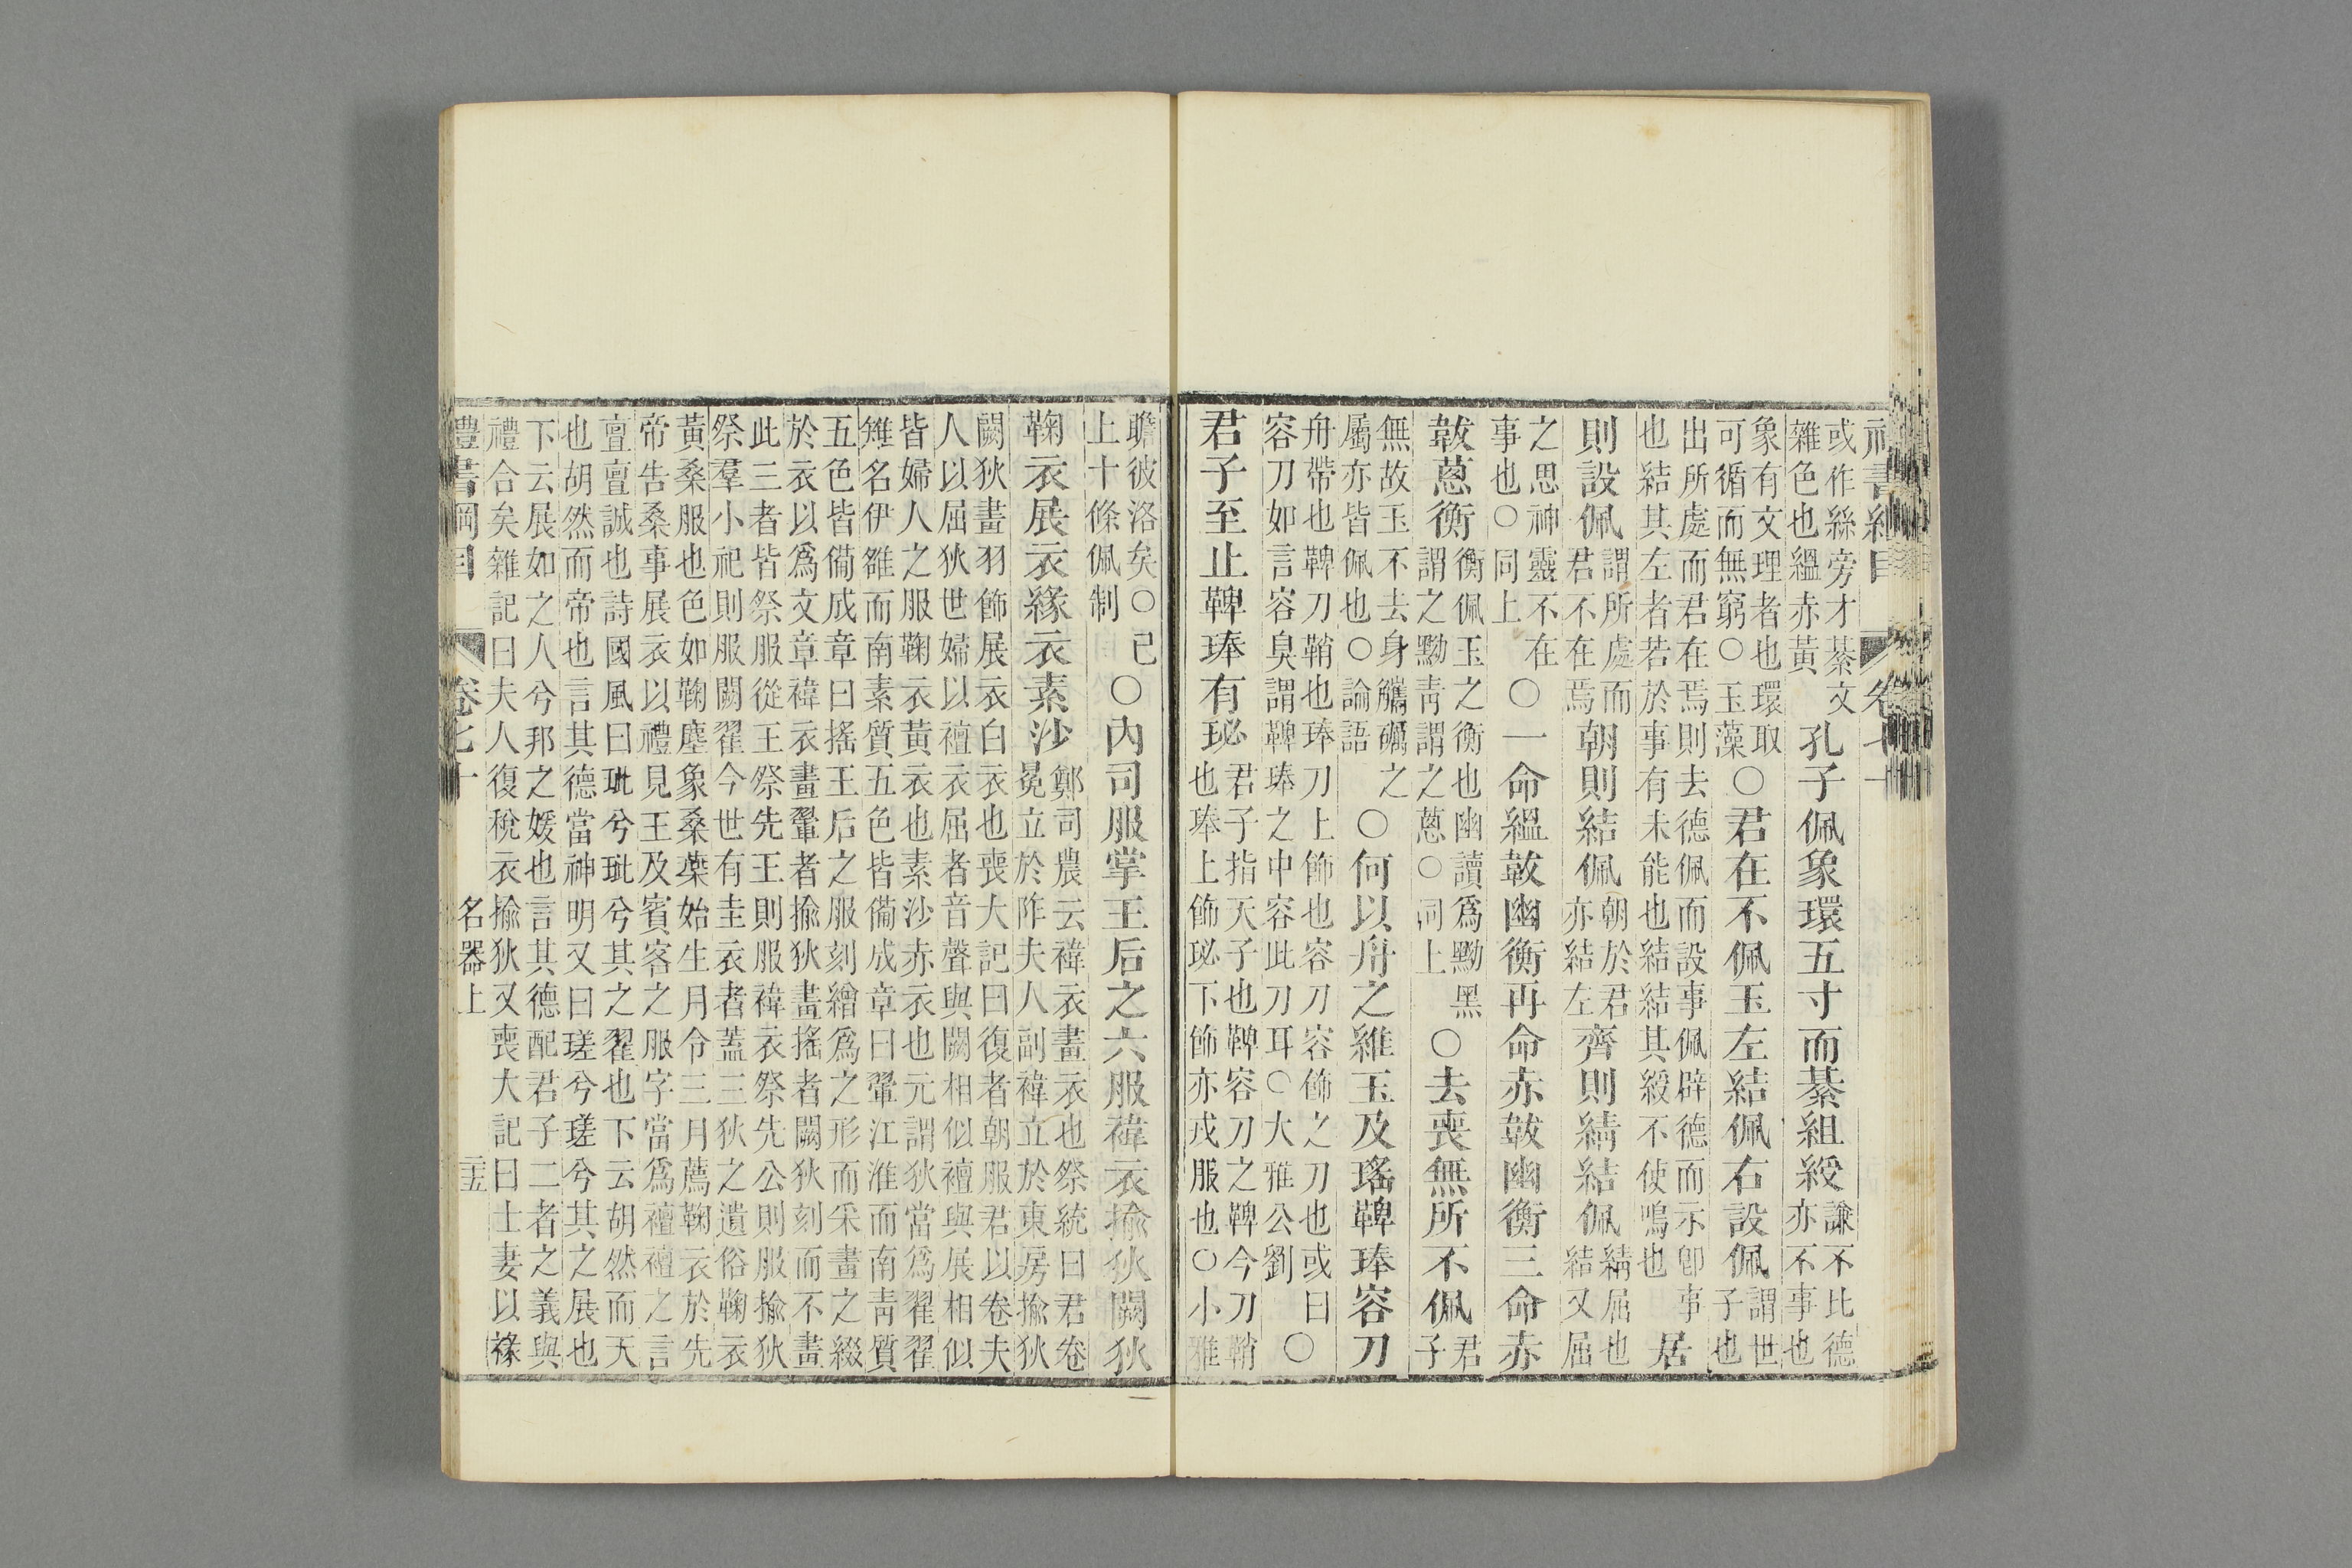 或作絲旁才綦文
雜色也縕赤黃
孔子佩象環五寸而綦組綬
謙不比德
亦不事也
象有文理者也環取
可循而無窮○玉藻
○君在不佩玉左結佩右設佩
謂世
子也
出所處而君在焉則去德佩而設事佩辟德而示卽事
也結其左者若於事有未能也結結其綬不使鳴也
居
則設佩
謂所處而
君不在焉
朝則結佩
朝於君
亦結左
齊則綪結佩
綪屈也
結又屈
之思神靈不在
事也○同上
○一命縕韍幽衡再命赤韍幽衡三命赤
韍蔥衡
衡佩玉之衡也幽讀爲黝黑
謂之黝靑謂之蔥○同上
○去喪無所不佩
君
子
無故玉不去身觿礪之
屬亦皆佩也○論語
○何以舟之維玉及瑤鞞琫容刀
舟帶也鞞刀鞘也琫刀上飾也容刀容飾之刀也或曰
容刀如言容臭謂鞞琫之中容此刀耳○大雅公劉
○
君子至止鞞琫有珌
君子指天子也鞞容刀之鞞今刀鞘
也琫上飾珌下飾亦戎服也○小雅
瞻彼洛矣○已
上十條佩制
○內司服掌王后之六服褘衣揄狄闕狄
鞠衣展衣緣衣素沙
鄭司農云褘衣畫衣也祭統曰君卷
冕立於阼夫人副褘立於東房揄狄
闕狄畫羽飾展衣白衣也喪大記曰復者朝服君以卷夫
人以屈狄世婦以襢衣屈者音聲與闕相似襢與展相似
皆婦人之服鞠衣黃衣也素沙赤衣也元謂狄當爲翟翟
雉名伊雒而南素質五色皆備成章曰翬江淮而南靑質
五色皆備成章曰搖王后之服刻繒爲之形而采畫之綴
於衣以爲文章褘衣畫翬者揄狄畫搖者闕狄刻而不畫
此三者皆祭服從王祭先王則服褘衣祭先公則服揄狄
祭羣小祀則服闕翟今世有圭衣者蓋三狄之遺俗鞠衣
黃桑服也色如鞠塵象桑葉始生月令三月薦鞠衣於先
帝告桑事展衣以禮見王及賓客之服字當爲襢襢之言
亶亶誠也詩國風曰玼兮玼兮其之翟也下云胡然而天
也胡然而帝也言其德當神明又曰瑳兮瑳兮其之展也
下云展如之人兮邦之媛也言其德配君子二者之義與
禮合矣雜記曰夫人復稅衣揄狄又喪大記曰士妻以褖
禮書綱目 卷七十 名器上